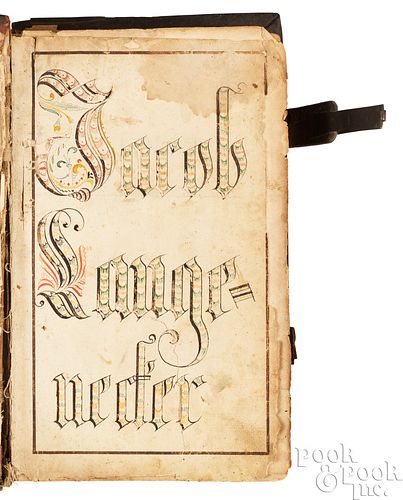 Jacob
Lange=
necker
POOK
& POOK
Inc.